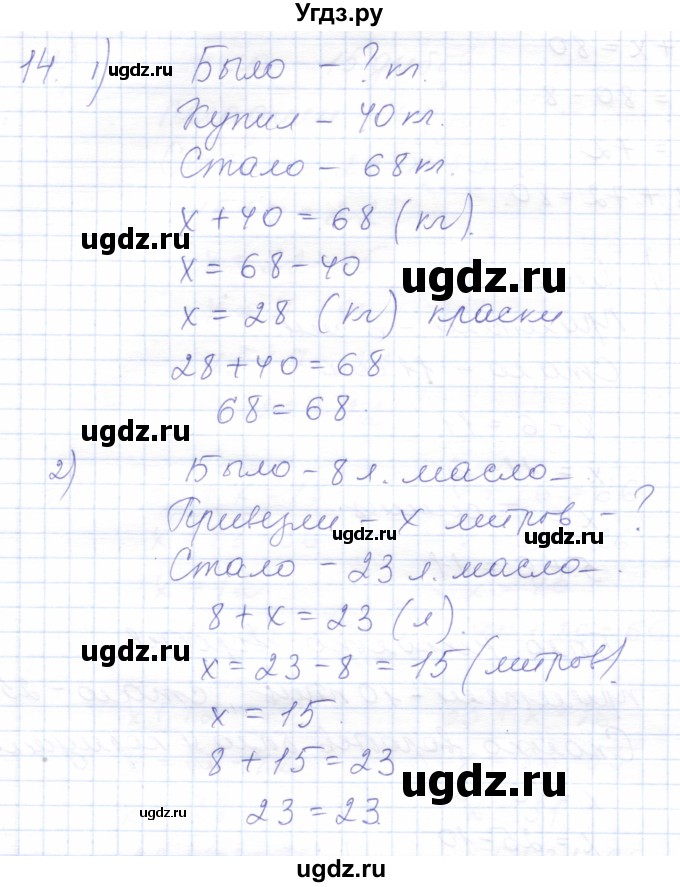 Угдз.ру
14. 1) Было - ? кг.
Купил - 40 кг.
Стало - 68 кг.
x + 40 = 68 (кг).
x = 68 - 40
x = 28 (кг) краски
28 + 40 = 68
68 = 68.
2) Было - 8 л. масло -
Привезли - x литров - ?
Стало - 23 л. масло -.
8 + x = 23 (л).
x = 23 - 8 = 15 (литров).
x = 15.
8 + 15 = 23
23 = 23.
ugdz.ru
ugdz.ru
ugdz.ru
ugdz.ru
ugdz.ru
ugdz.ru
ugdz.ru
ugdz.ru
ugdz.ru
ugdz.ru